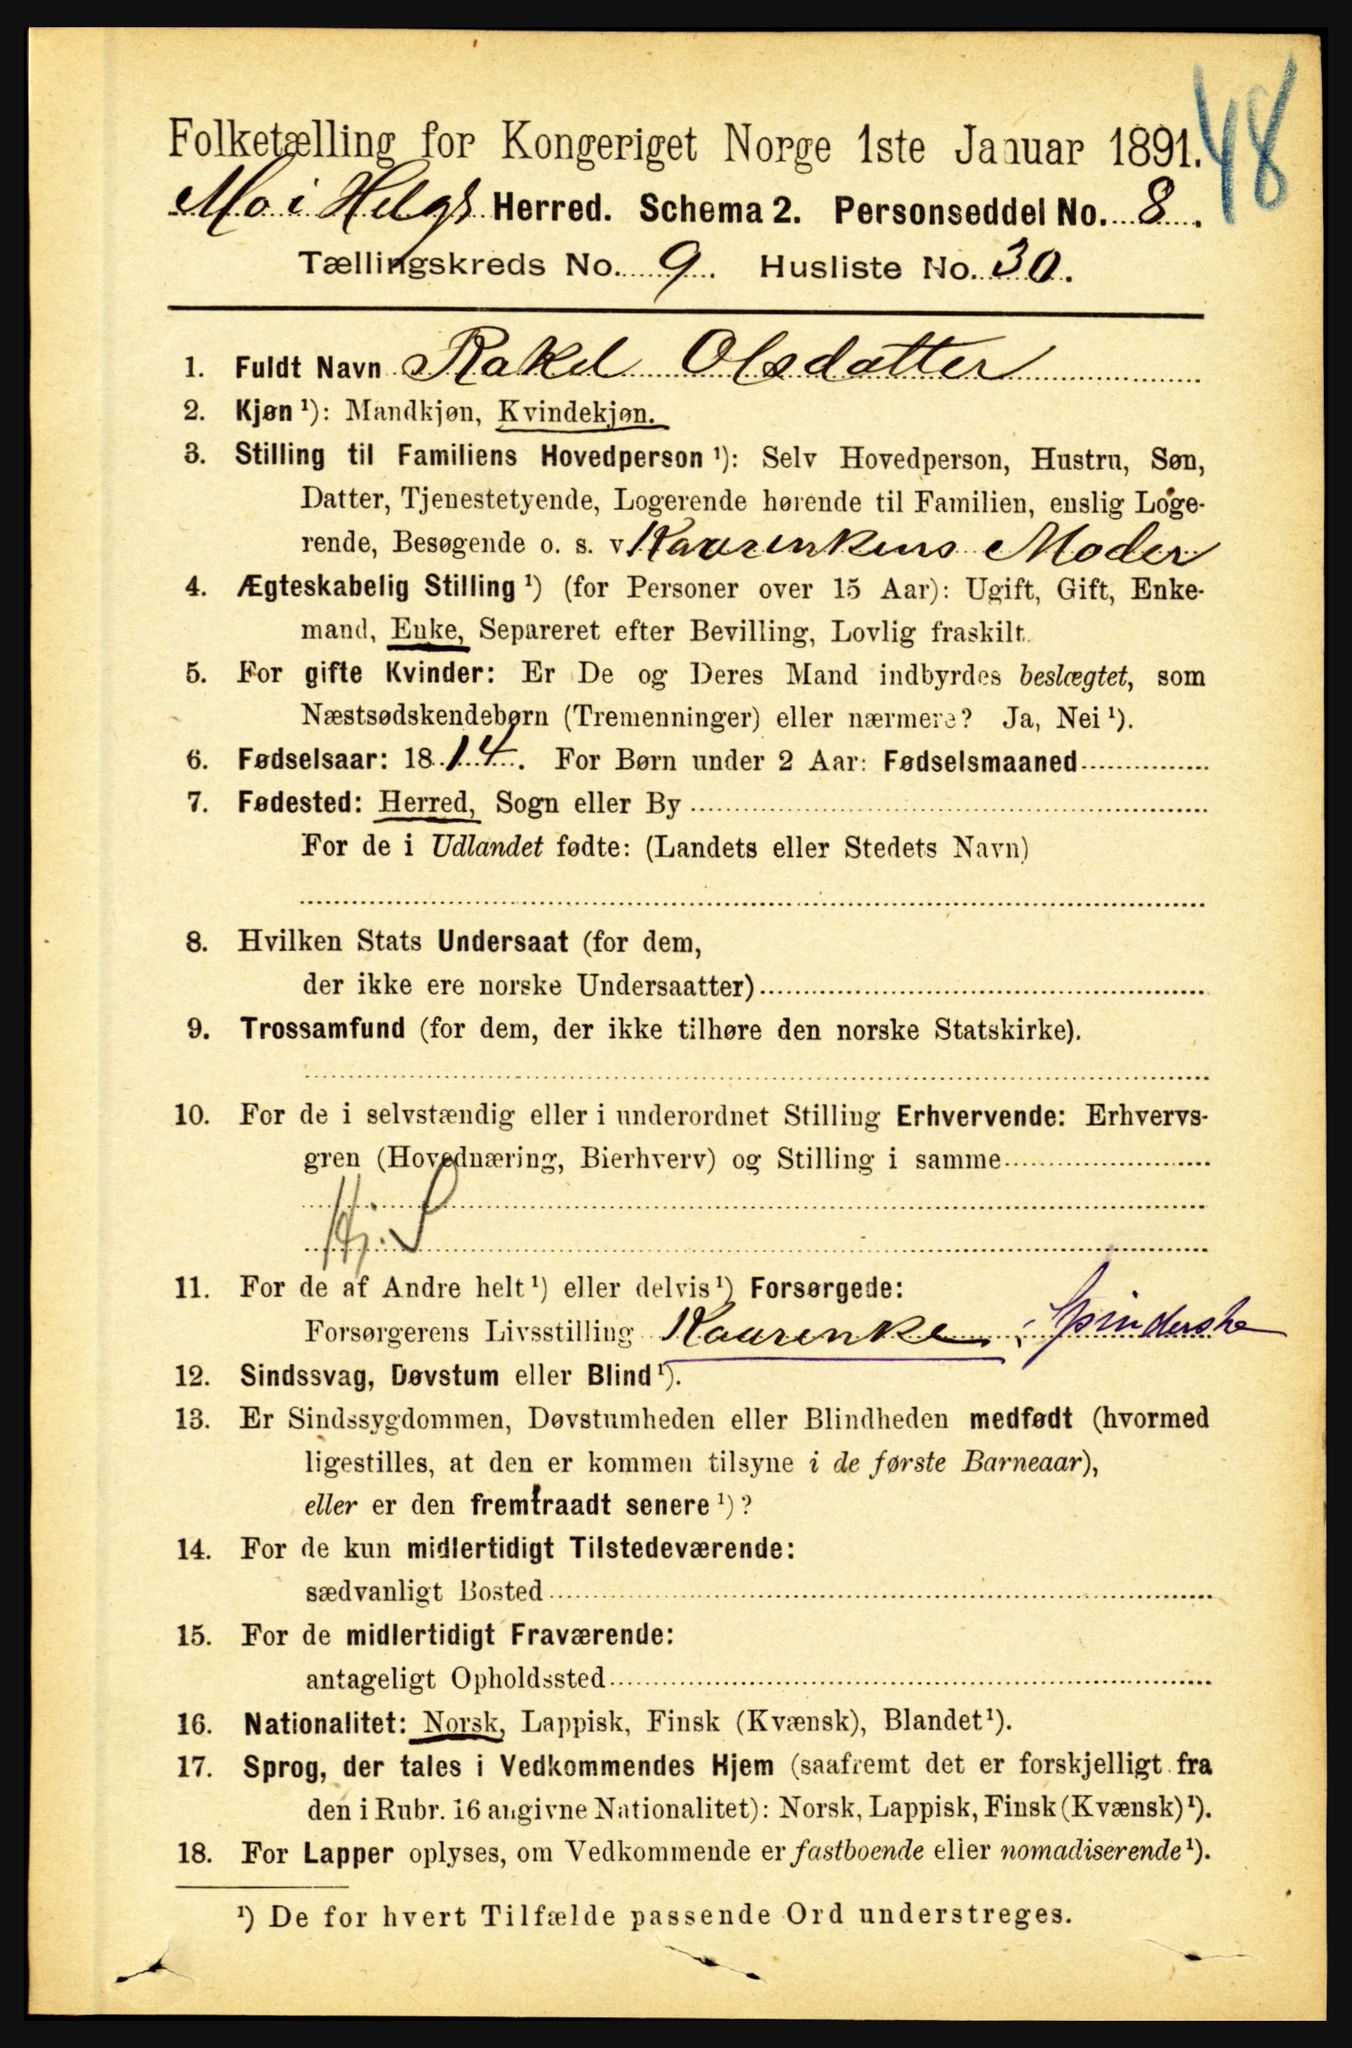 48
Folketælling for Kongeriget Norge 1ste Januar 1891.
Mo i Helgl Herred. Schema 2. Personseddel No. 8.
Tællingskreds No. 9. Husliste No. 30.
1. Fuldt Navn Rakel Olsdatter
2. Kjøn ¹): Mandkjøn, Kvindekjøn.
3. Stilling til Familiens Hovedperson ¹): Selv Hovedperson, Hustru, Søn,
Datter, Tjenestetyende, Logerende hørende til Familien, enslig Loge-
rende, Besøgende o. s. v Kaarenkens Moder
4. Ægteskabelig Stilling ¹) (for Personer over 15 Aar): Ugift, Gift, Enke-
mand, Enke, Separeret efter Bevilling, Lovlig fraskilt.
5. For gifte Kvinder: Er De og Deres Mand indbyrdes beslægtet, som
Næstsødskendebørn (Tremenninger) eller nærmere? Ja, Nei ¹).
6. Fødselsaar: 1814. For Børn under 2 Aar: Fødselsmaaned
7. Fødested: Herred, Sogn eller By
For de i Udlandet fødte: (Landets eller Stedets Navn)
8. Hvilken Stats Undersaat (for dem,
der ikke ere norske Undersaatter)
9. Trossamfund (for dem, der ikke tilhøre den norske Statskirke).
10. For de i selvstændig eller i underordnet Stilling Erhvervende: Erhvervs-
gren (Hovednæring, Bierhverv) og Stilling i samme
11. For de af Andre helt ¹) eller delvis ¹) Forsørgede:
Forsørgerens Livsstilling Kaarenke, Spinderske
12. Sindssvag, Døvstum eller Blind ¹).
13. Er Sindssygdommen, Døvstumheden eller Blindheden medfødt (hvormed
ligestilles, at den er kommen tilsyne i de første Barneaar),
eller er den fremtraadt senere ¹)?
14. For de kun midlertidigt Tilstedeværende:
sædvanligt Bosted
15. For de midlertidigt Fraværende:
antageligt Opholdssted
16. Nationalitet: Norsk, Lappisk, Finsk (Kvænsk), Blandet ¹).
17. Sprog, der tales i Vedkommendes Hjem (saafremt det er forskjelligt fra
den i Rubr. 16 angivne Nationalitet): Norsk, Lappisk, Finsk (Kvænsk) ¹).
18. For Lapper oplyses, om Vedkommende er fastboende eller nomadiserende ¹).
¹) De for hvert Tilfælde passende Ord understreges.